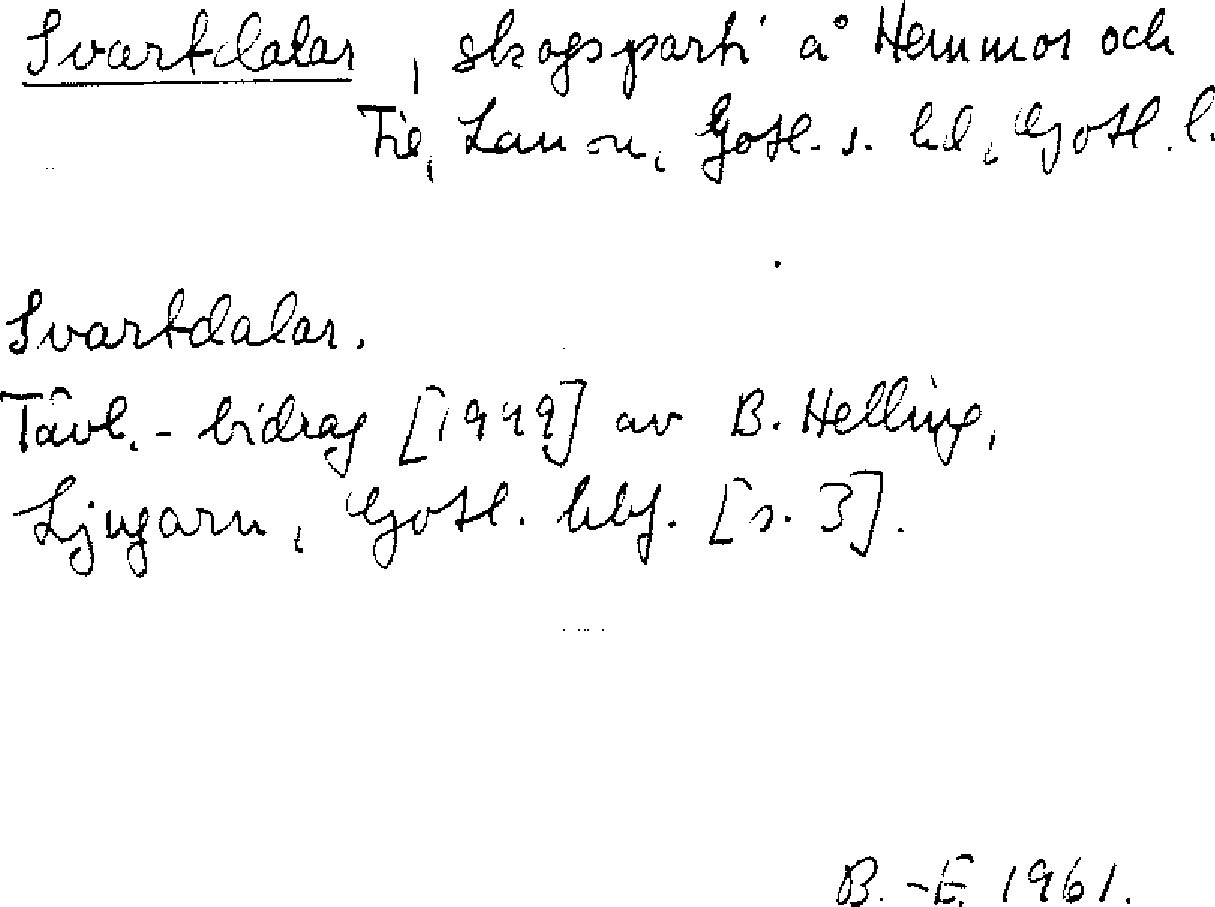 Svartdalar, skogsparti å Hemmor och
Fie, Lau sn, Gotl. s. hd, Gotl. l.
Svartdalar.
Tävl.-bidrag [1949] av B. Helling,
Ljugarn, Gotl. hbf. [s. 3].
B.-E. 1961.